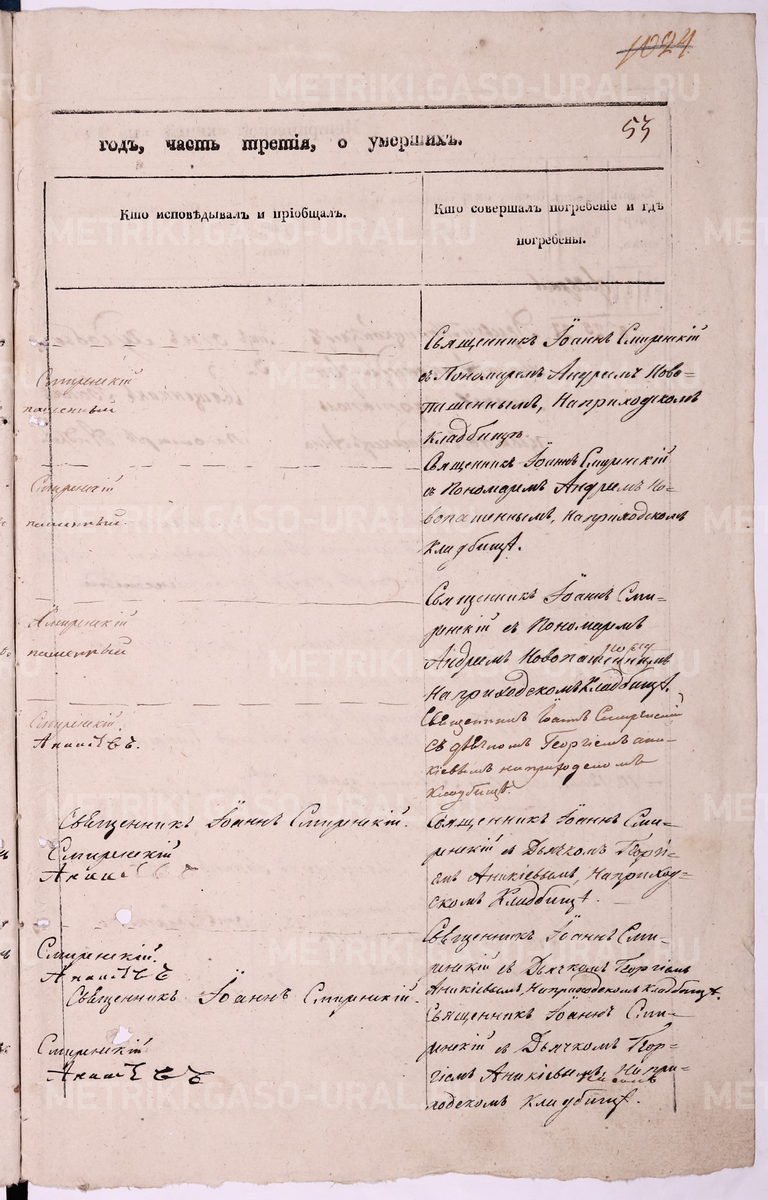 1024
53
годъ, часть третія, о умершихъ.
Кто исповѣдывалъ и пріобщалъ.
Кто совершалъ погребеніе и гдѣ
погребены.
Священникъ Іоаннъ Смиренскій
съ Пономаремъ Андреемъ Ново-
пашеннымъ, на приходскомъ
кладбищѣ.
Смиренскій
пашенный
Священникъ Іоаннъ Смиренскій
съ Пономаремъ Андреемъ Но-
вопашеннымъ, на приходскомъ
кладбищѣ.
Смиренскій
пашенный
Священникъ Іоаннъ Сми-
ренскій съ Пономаремъ
Андреемъ Новопашеннымъ
на приходскомъ кладбищѣ.
Смиренскій
пашенный
Священникъ Іоаннъ Смиренскій
съ дьячкомъ Георгіемъ Ани-
кіевымъ на приходскомъ
кладбищѣ.
Смиренскій
Аникіевъ.
Священникъ Іоаннъ Смиренскій.
Смиренскій
Аникіевъ
Священникъ Іоаннъ Сми-
ренскій съ Дьячкомъ Георгі-
емъ Аникіевымъ, на приход-
скомъ кладбищѣ.
Смиренскій.
Аникіевъ
Священникъ Іоаннъ Сми-
ренскій съ Дьячкомъ Георгіемъ
Аникіевымъ, на приходскомъ кладбищѣ.
Священникъ Іоаннъ Смиренскій.
Смиренскій
Аникіевъ
Священникъ Іоаннъ Сми-
ренскій съ Дьячкомъ Геор-
гіемъ Аникіевымъ, на при-
ходскомъ кладбищѣ.
METRIKI.GASO-URAL.RU